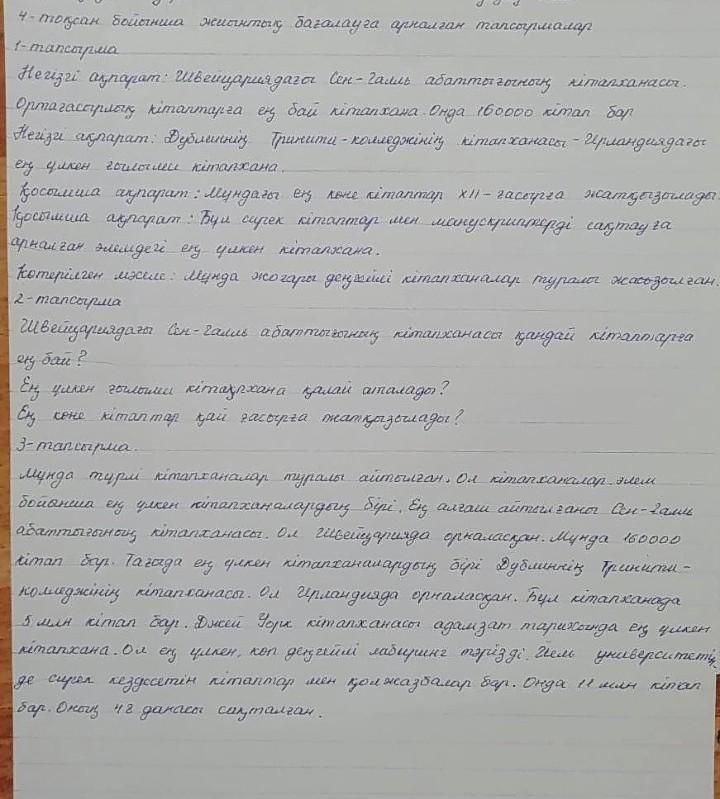 4-тоқсан бойынша жиынтық бағалауға арналған тапсырмалар
1-тапсырма
Негізгі ақпарат: Швейцариядағы Сен-Галль абаттығының кітапханасы.
Ортағасырлық кітаптарға ең бай кітапхана. Онда 160000 кітап бар
Негізгі ақпарат: Дублиннің Тринити-колледжінің кітапханасы - Ирландиядағы
ең үлкен ғылыми кітапхана.
Қосымша ақпарат: Мұндағы ең көне кітаптар XII-ғасырға жатқызылады.
Қосымша ақпарат: Бұл сирек кітаптар мен манускриптерді сақтауға
арналған әлемдегі ең үлкен кітапхана.
Көтерілген мәселе: Мұнда жоғары деңгейлі кітапханалар туралы
2-тапсырма
Швейцариядағы Сен-Галль абаттығының кітапханасы қандай кітаптарға
ең бай?
Ең үлкен ғылыми кітақрхана қалай аталады?
Ең көне кітаптар қай ғасырға жатқызылады?
3-тапсырма.
Мұнда түрлі кітапханалар туралы айтылған. Ол кітапханалар әлем
бойынша ең үлкен кітапханалардың бірі. Ең алғаш айтылғаны Сен-Галль
абаттығының кітапханасы. Ол Швейцарияда орналасқан. Мұнда 160000
кітап бар. Тағыда ең үлкен кітапханалардың бірі Дублиннің Тринити-
колледжінің кітапханасы. Ол Ирландияда орналасқан. Бұл кітапханада
5 млн кітап бар. Джей Уокр кітапханасы адамзат тарихында ең үлкен
кітапхана. Ол ең үлкен, көп деңгейлі лабиринт тәрізді. Йель университетің
де сирек кездесетін кітаптар мен қолжазбалар бар. Онда 11 млн кітап
бар. Оның 48 данасы сақталған.